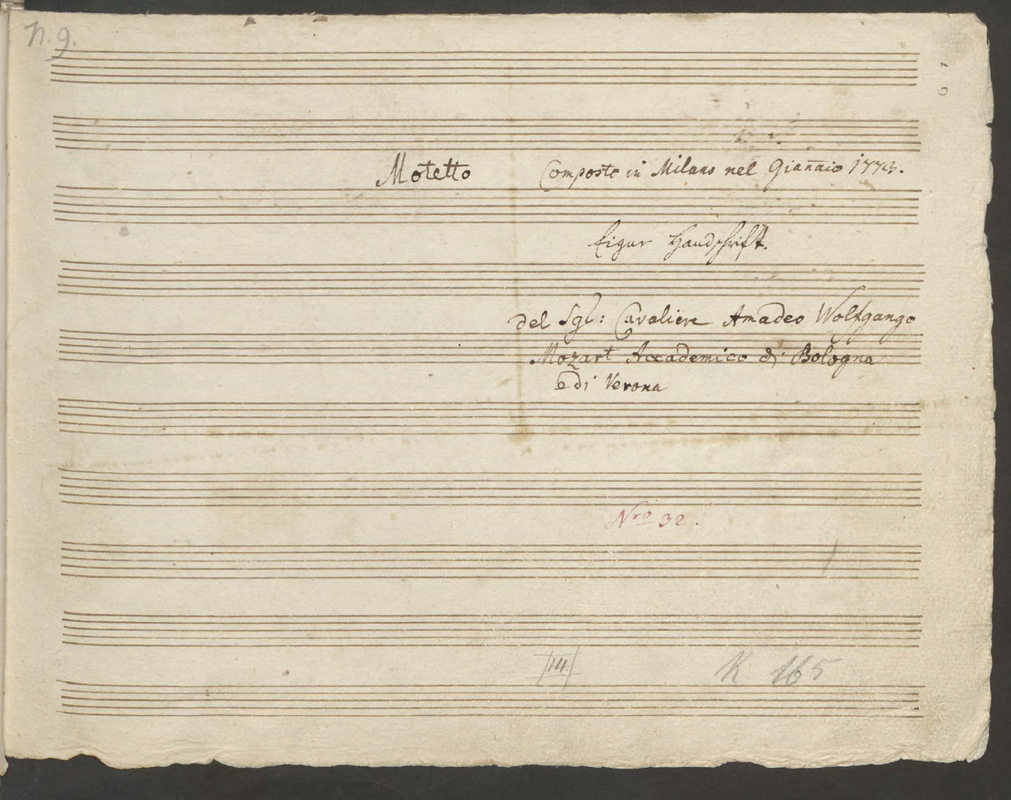 n. 9.
Motetto Composto in Milano nel Giannaio 1773.
Eigne Handschrift.
del Sgr: Cavaliere Amadeo Wolfgango
Mozart Accademico di Bologna
e di Verona
Nro 32.
III.
K 165